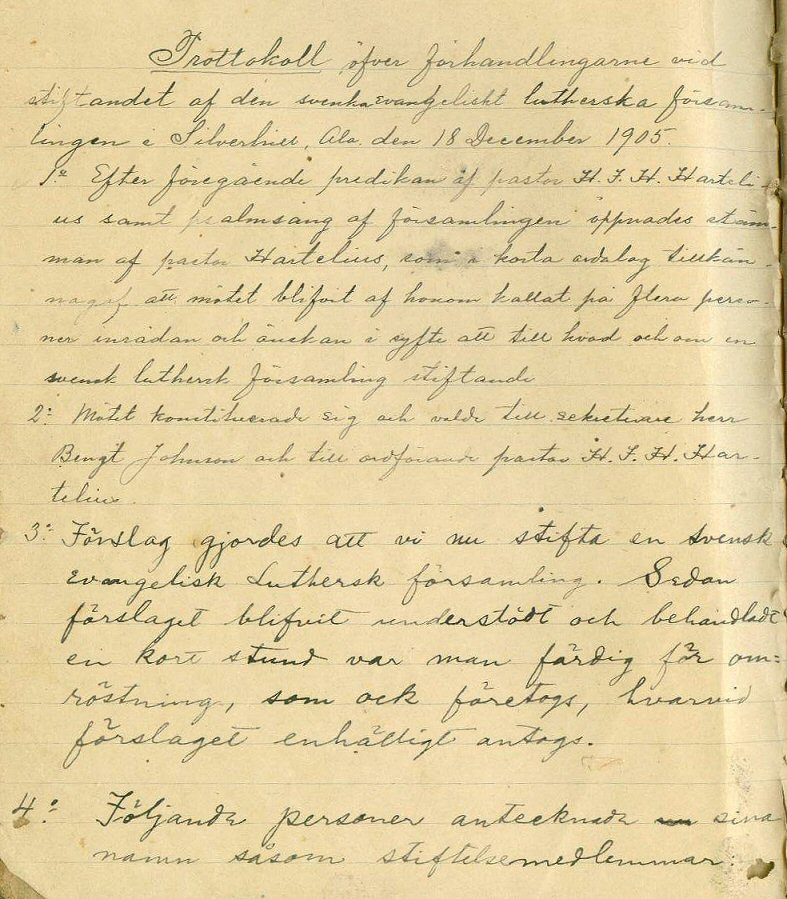 Prottokoll öfver förhandlingarne vid
stiftandet af den svenska evangeliskt lutherska försam-
lingen i Silverhill, Ala. den 18 December 1905.
1o Efter föregående predikan af pastor H. F. H. Harteli
us samt psalmsång af församlingen öppnades stäm-
man af pastor Hartelius, som i korta ordalag tillkän-
nagaf att mötet blifvit af honom kallat på flera perso-
ner inrådan och önskan i syfte att till hvad och om en
svensk luthersk församling stiftande
2: Mötet konstituerade sig och valde till sekreterare herr
Bengt Johnson och till ordförande pastor H. F. H. Har-
telius.
3o Förslag gjordes att vi nu stifta en svensk
Evangelisk Luthersk församling. Sedan
förslaget blifvit understödt och behandladt
en kort stund var man färdig för om=
röstning, som ock företogs, hvarvid
förslaget enhälligt antogs.
4o Följande personer antecknade sina
namn såsom stiftelsemedlemmar.